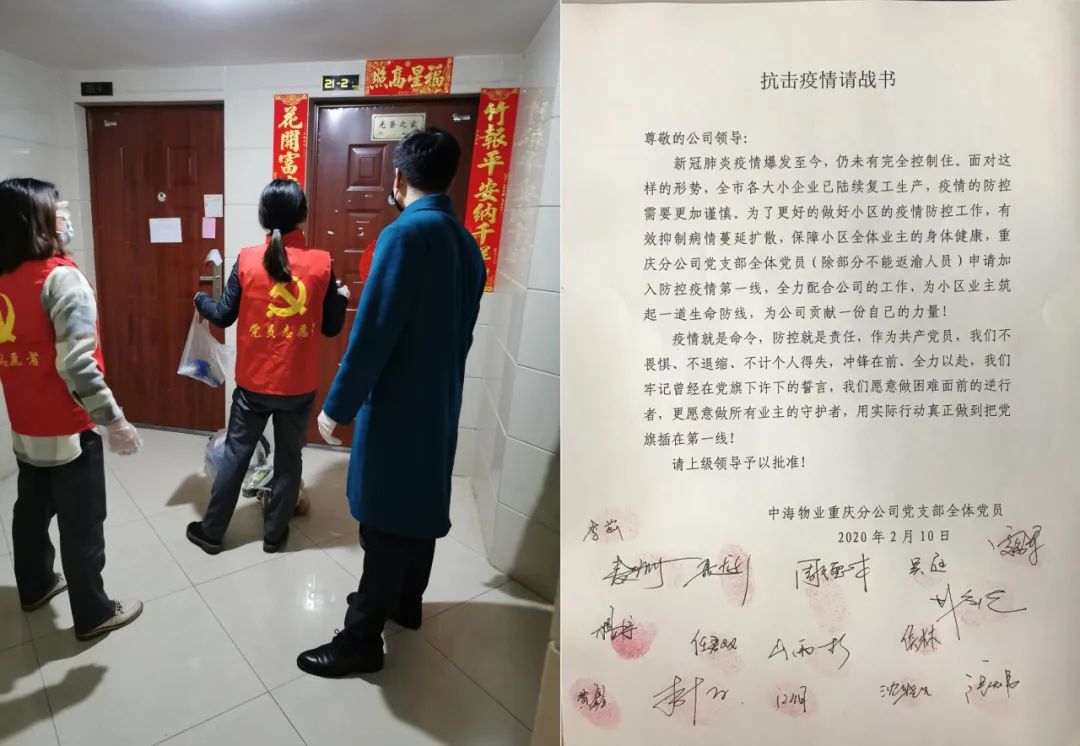 21-2
福星高照
花開富
竹報平安納千
光荣之家
党员志愿
愿者
抗击疫情请战书
尊敬的公司领导：
新冠肺炎疫情爆发至今，仍未有完全控制住。面对这
样的形势，全市各大小企业已陆续复工生产，疫情的防控
需要更加谨慎。为了更好的做好小区的疫情防控工作，有
效抑制病情蔓延扩散，保障小区全体业主的身体健康，重
庆分公司党支部全体党员（除部分不能返渝人员）申请加
入防控疫情第一线，全力配合公司的工作，为小区业主筑
起一道生命防线，为公司贡献一份自己的力量！
疫情就是命令，防控就是责任，作为共产党员，我们不
畏惧、不退缩、不计个人得失，冲锋在前、全力以赴，我们
牢记曾经在党旗下许下的誓言，我们愿意做困难面前的逆行
者，更愿意做所有业主的守护者，用实际行动真正做到把党
旗插在第一线！
请上级领导予以批准！
中海物业重庆分公司党支部全体党员
2020 年 2 月 10 日
吴庭
侯林